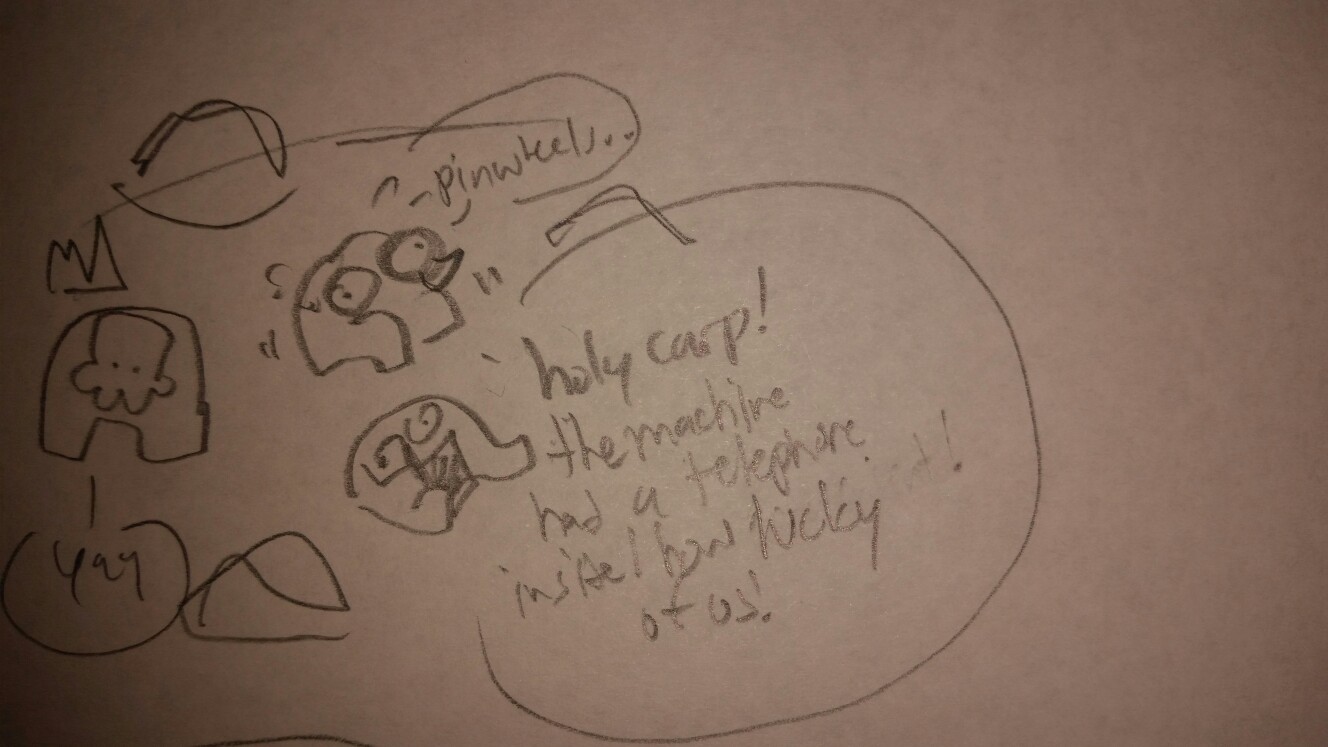 pinwheels..
holy carp!
the machine
had a telephone
inside! how lucky
of us!
yay